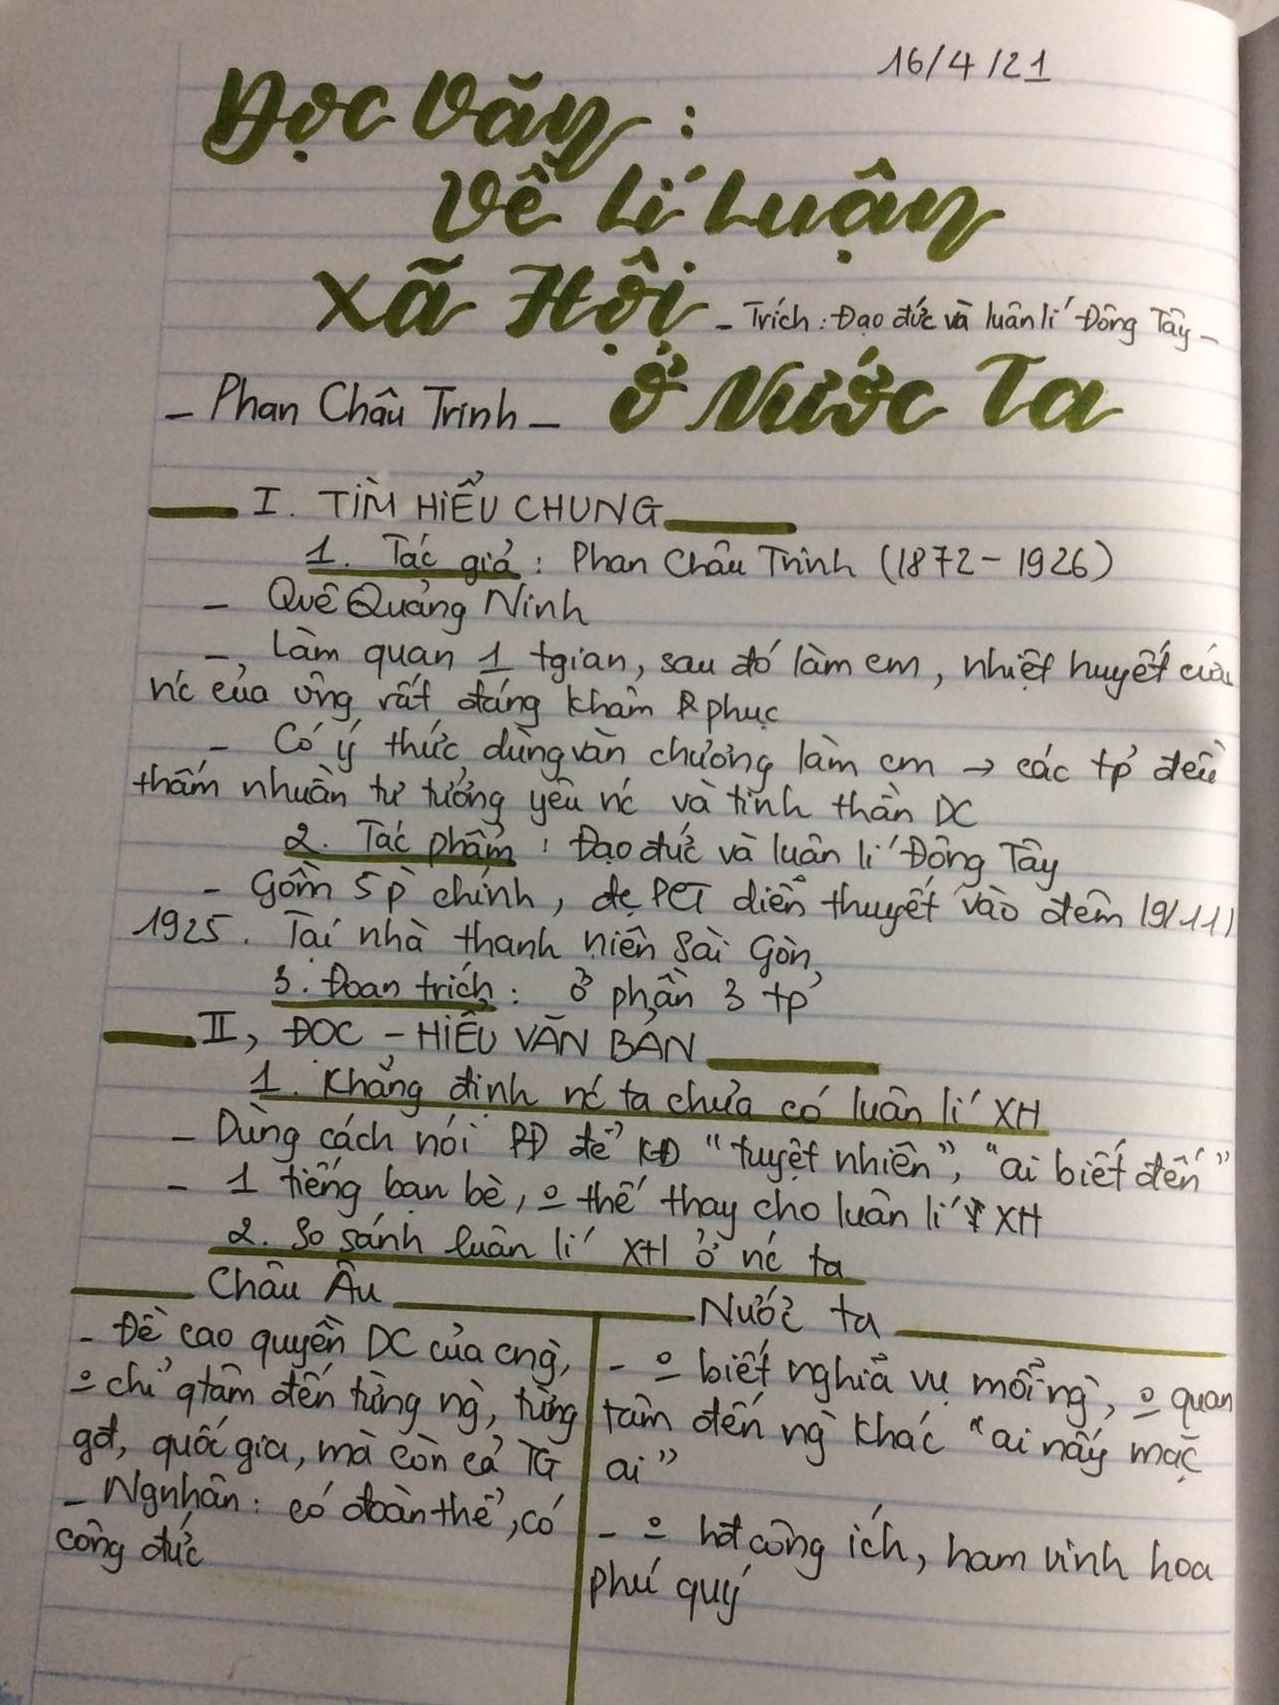 16/4/21
Đọc Văn :
Về Lí Luận
Xã Hội
- Trích : Đạo đức và luân lí Đông Tây -
- Phan Châu Trinh -
Ở Nước Ta
I. TÌM HIỂU CHUNG
1. Tác giả : Phan Châu Trinh (1872 - 1926)
- Quê Quảng Ninh
- Làm quan 1 tgian, sau đó làm cm, nhiệt huyết cứu
nc của ông rất đáng khâm phục
- Có ý thức dùng văn chương làm cm → các tp đều
thấm nhuần tư tưởng yêu nc và tinh thần DC
2. Tác phẩm : Đạo đức và luân lí Đông Tây
- Gồm 5 p chính, đc PCT diễn thuyết vào đêm 19/11/
1925. Tại nhà thanh niên Sài Gòn
3. Đoạn trích : ở phần 3 tp
II, ĐỌC - HIỂU VĂN BẢN
1. Khẳng định nc ta chưa có luân lí XH
- Dùng cách nói PĐ để KĐ "tuyệt nhiên", "ai biết đến"
- 1 tiếng bạn bè, o thế thay cho luân lí XH
2. So sánh luân lí XH ở nc ta
Châu Âu
Nước ta
- Đề cao quyền DC của cng,
o chỉ qtâm đến từng ng, từng
gđ, quốc gia, mà còn cả TG
- Ngnhân : có đoàn thể, có
công đức
- o biết nghĩa vụ mỗi ng, o quan
tâm đến ng khác "ai nấy mặc
ai"
- o hđ công ích, ham vinh hoa
phú quý